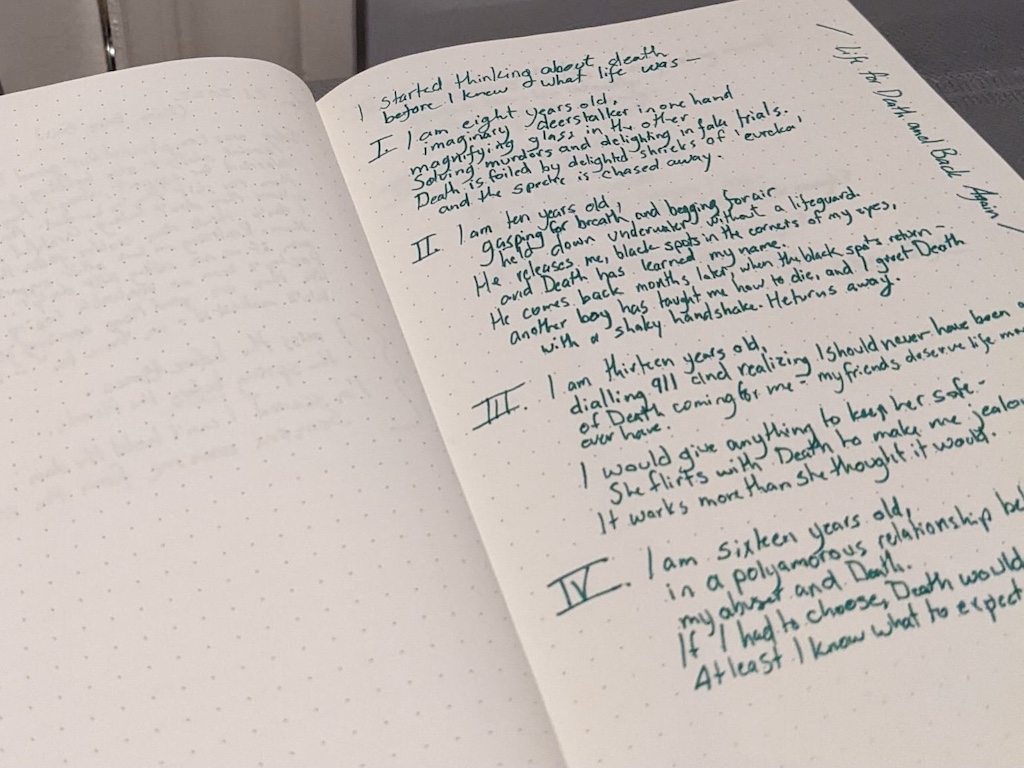 / Life for Death and Back Again /
I started thinking about death
before I knew what life was –
I. I am eight years old,
imaginary deerstalker in one hand
magnifying glass in the other
Solving murders and delighting in fake trials.
Death is foiled by delighted shrieks of 'eureka'
and the spectre is chased away.
II. I am ten years old,
gasping for breath and begging for air
held down underwater without a lifeguard.
He releases me, black spots in the corners of my eyes,
and Death has learned my name.
He comes back months later, when the black spots return –
another boy has taught me how to die, and I greet Death
with a shaky handshake. He turns away.
III. I am thirteen years old,
dialling 911 and realizing I should never have been
of Death coming for me – my friends deserve life
ever have.
I would give anything to keep her safe –
She flirts with Death to make me
It works more than she thought it would.
IV. I am sixteen years old,
in a polyamorous relationship
my abuser and Death.
If I had to choose, Death would
At least I know what to expect